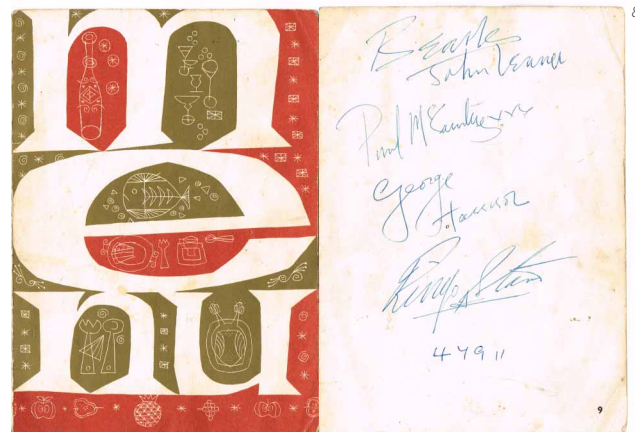 menu
Beatles
John Lennon
Paul McCartney
George
Harrison
Ringo Starr
47911
9